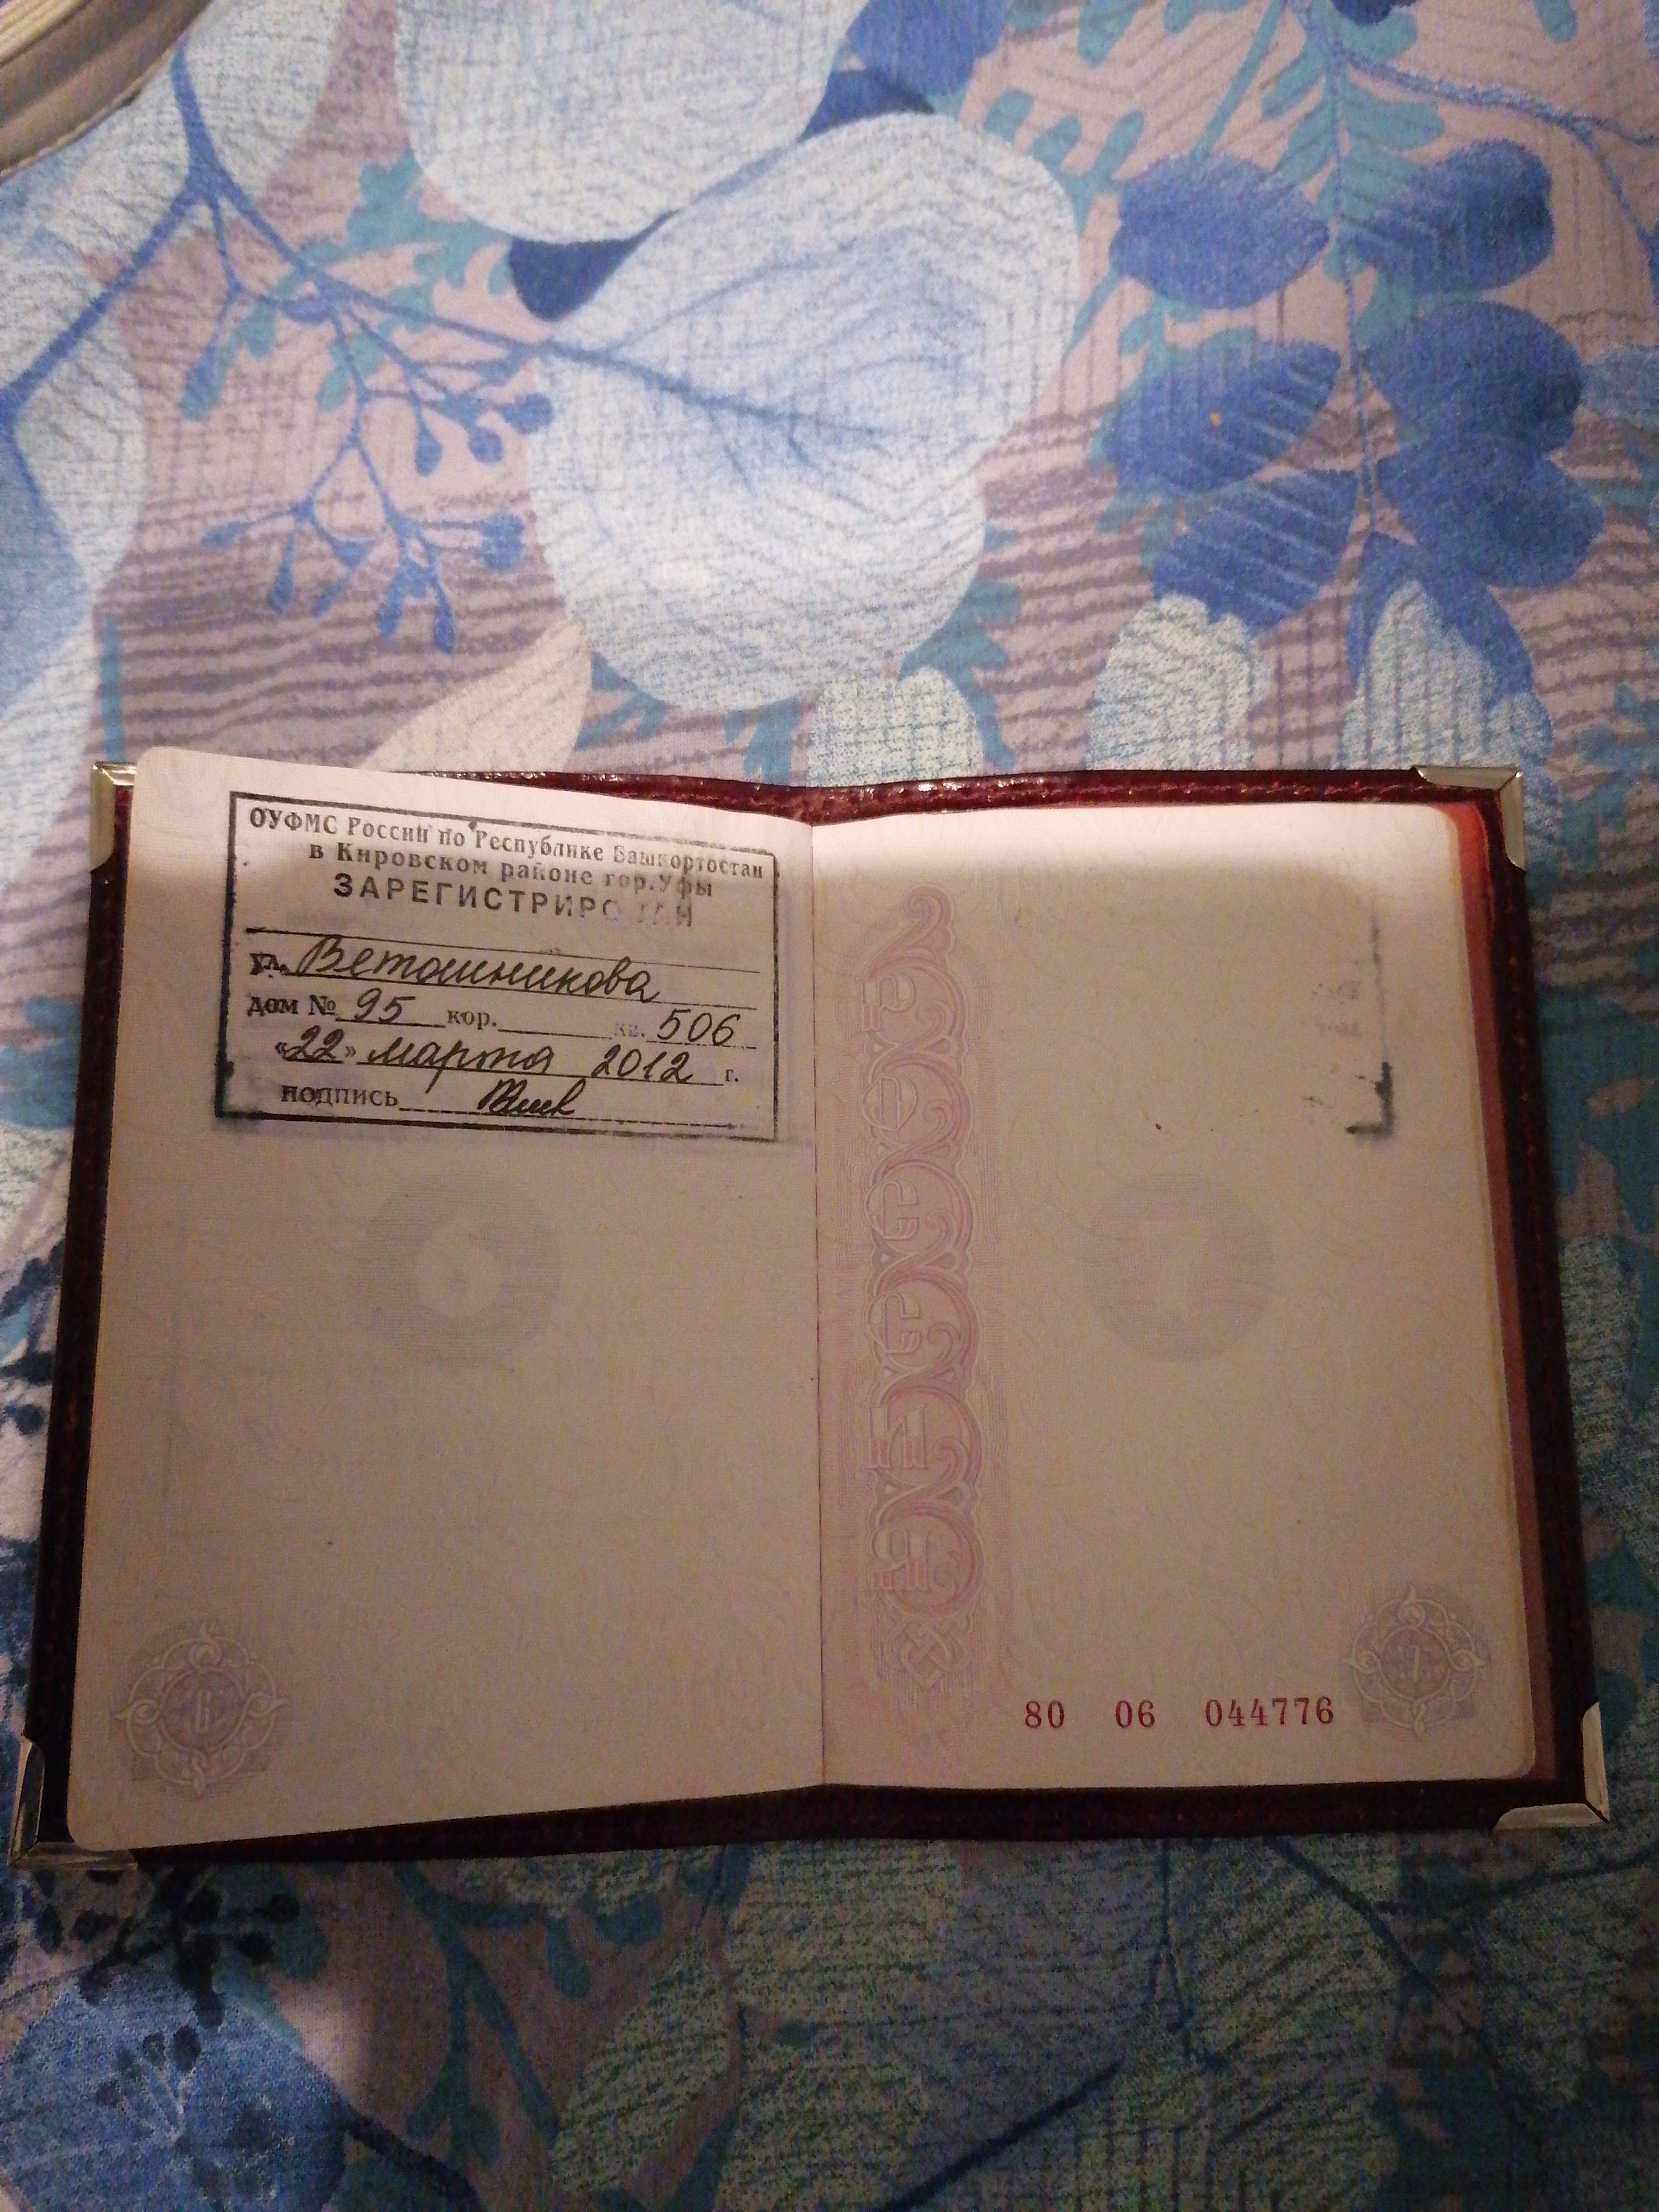 ОУФМС России по Республике Башкортостан
в Кировском районе гор.Уфы
ул. Ветошникова
дом № 95 кор. кв. 506
«22» марта 2012 г.
подпись
6
7
80 06 044776
7